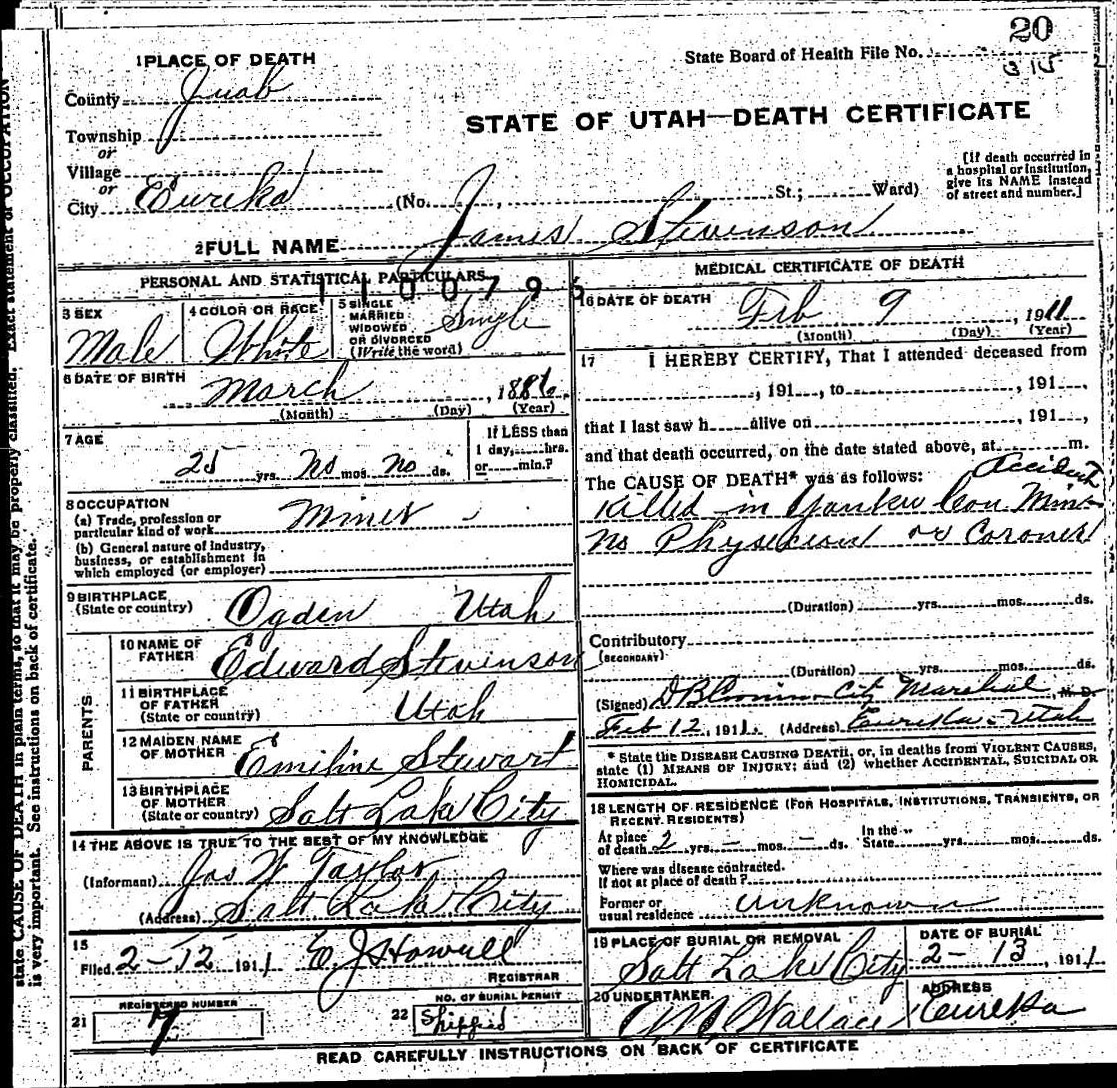 20
State Board of Health File No.
315
1 PLACE OF DEATH
County Juab
Township
or
Village
or
City Eureka (No. , St.; Ward)
STATE OF UTAH—DEATH CERTIFICATE
[If death occurred in
a hospital or institution,
give its NAME instead
of street and number.]
2 FULL NAME James Stevenson
PERSONAL AND STATISTICAL PARTICULARS
1100795
3 SEX
Male
4 COLOR OR RACE
White
5 SINGLE
MARRIED
WIDOWED
OR DIVORCED
(Write the word)
Single
6 DATE OF BIRTH
March , 1886
(Month) (Day) (Year)
7 AGE
25 yrs. No mos. No ds.
If LESS than
1 day, hrs.
or min.?
8 OCCUPATION
(a) Trade, profession or
particular kind of work
Miner
(b) General nature of industry,
business, or establishment in
which employed (or employer)
9 BIRTHPLACE
(State or country)
Ogden Utah
PARENTS
10 NAME OF
FATHER
Edward Stevenson
11 BIRTHPLACE
OF FATHER
(State or country)
Utah
12 MAIDEN NAME
OF MOTHER
Emiline Stewart
13 BIRTHPLACE
OF MOTHER
(State or country)
Salt Lake City
14 THE ABOVE IS TRUE TO THE BEST OF MY KNOWLEDGE
(Informant) Jos W Taylor
(Address) Salt Lake City
15
Filed 2-12 1911 E. J Howell
REGISTRAR
REGISTERED NUMBER
21 7
NO. OF BURIAL PERMIT
22 Shipped
MEDICAL CERTIFICATE OF DEATH
16 DATE OF DEATH
Feb 9 , 1911
(Month) (Day) (Year)
17 I HEREBY CERTIFY, That I attended deceased from
, 191 , to , 191 ,
that I last saw h alive on , 191 ,
and that death occurred, on the date stated above, at m.
The CAUSE OF DEATH* was as follows:
Accident
Killed in Yankee Con Mine
No Physician or Coroner
(Duration) yrs. mos. ds.
Contributory
(SECONDARY)
(Duration) yrs. mos. ds.
(Signed) City Marshal, M.D.
Feb 12, 1911. (Address) Eureka Utah
* State the DISEASE CAUSING DEATH, or, in deaths from VIOLENT CAUSES,
state (1) MEANS OF INJURY; and (2) whether ACCIDENTAL, SUICIDAL OR
HOMICIDAL.
18 LENGTH OF RESIDENCE (FOR HOSPITALS, INSTITUTIONS, TRANSIENTS, OR
RECENT RESIDENTS)
At place
of death 2 yrs. - mos. - ds.
In the
State yrs. mos. ds.
Where was disease contracted.
If not at place of death?
Former or
usual residence unknown
19 PLACE OF BURIAL OR REMOVAL
Salt Lake City
DATE OF BURIAL
2-13, 1911
20 UNDERTAKER
Wallace
ADDRESS
Eureka
READ CAREFULLY INSTRUCTIONS ON BACK OF CERTIFICATE
state CAUSE OF DEATH in plain terms, so that it may be properly classified. Exact statement of OCCUPATION
is very important. See instructions on back of certificate.